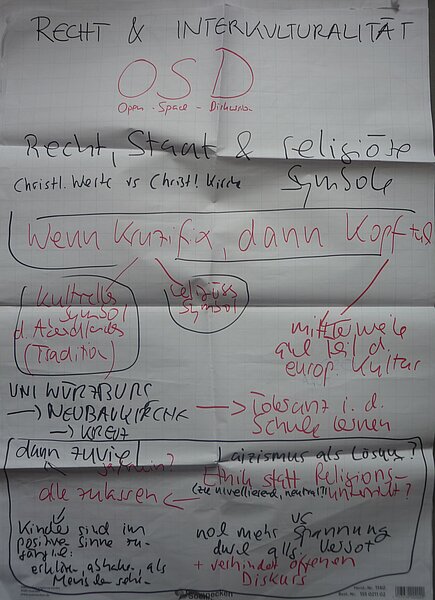 RECHT & INTERKULTURALITÄT
OSD
Open - Space - Diskussion
Recht, Staat & religiöse
Symbole
Christl. Werte vs Christl. Kirche
Wenn Kruzifix, dann Kopftuch
kulturelles
Symbol
d. Abendlandes
(Tradition)
religiöses
Symbol
mittlerweile
auch Teil d.
europ. Kultur
UNI WÜRZBURG
→ NEUBAUKIRCHE
→ KREUZ
→ Toleranz i. d.
Schule lernen
dann zuviel
Laizismus als Lösung?
Ethik statt Religions-
unterricht?
(zu nivellierend, neutral?)
alle zulassen
Kinder sind im
positiven Sinne zu-
gänglich:
als
Menschen
vs
noch mehr Spannung
durch allg. Verbot
+ verhindert offenen
Diskurs
Soennecken